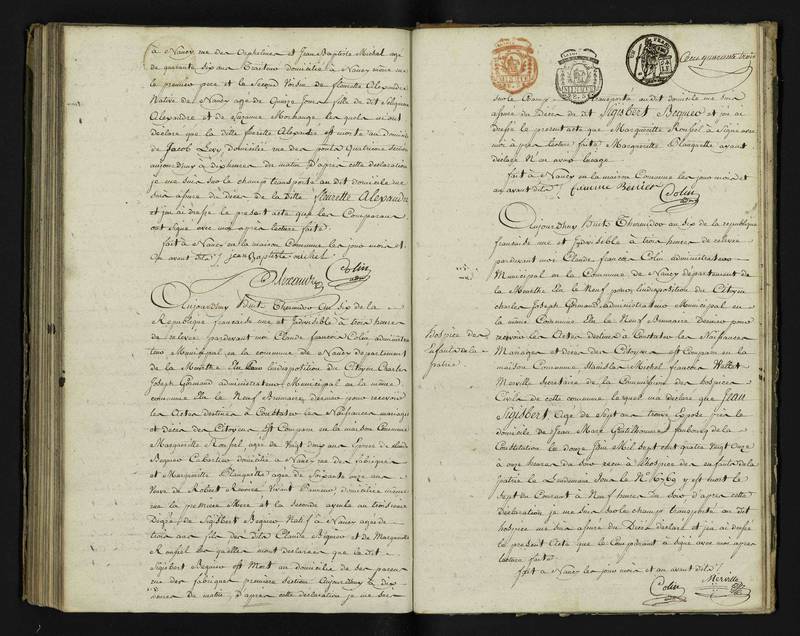 à Nancy rue des Orphelines et Jean Baptiste Michel age
de quarante six ans Traiteur domicilié à Nancy même rue
le premier pere et le Second Voisin de fleurette Alexandre
Native de Nancy age de Quinze Jours fille de dit
Alexandre et de Suzanne Morhange les quels m'ont
déclaré que la ditte fleurette Alexandre est morte au domicile
de Jacob Levy domicilié rue des ponts Quatrieme Section
aujourdhuy à dix heures du matin D'après cette déclaration
je me suis sur le champ transporté au dit domicile me
suis assuré du Décès de la ditte fleurette Alexandre
et j'ai dressé le présent acte que les Comparans
ont signé avec moi apres lecture faite
fait à Nancy en la maison Commune les jour mois et
an avant dits / jean Baptiste michel Colin
Alexandre
Aujourdhuy huit Thermidor an six de la
République francaise une et Indivisible à trois heures
de relevée pardevant moi Claude francois Colin administra
teur Municipal en la commune de Nancy departement
de la Meurthe Elu pour l'indisposition du Citoyen Charles
Joseph Gormand administrateur Municipal en la même
commune Elu le Neuf Brumaire dernier pour recevoir
les Actes destinés à Constater les Naissances mariages
et décès des Citoyens Est Comparu en la maison Commune
Marguerite Roussel age de Vingt deux ans Epouse de Claude
Bequier Cabartier domicilié à Nancy rue des fabriques
et Marguerite Plauguette agée de Soixante onze ans
Veuve de Robert vivant domiciliée même
rue la premiere Mere et la seconde ayeule au troisieme
Degré de Sigisbert Bequier Natif à Nancy agé de
trois ans fils des dits Claude Bequier et de Marguerite
Roussel les quelles mont déclaré que le dit
Sigisbert Bequier est Mort au domicile de ses parens
rue des fabriques premiere section Aujourdhuy à dix
heures du matin, d'apres cette déclaration je me suis
Cent quarante trois
sur le Champ transporté au dit domicile me suis
assuré du Décès du dit Sigisbert Bequier et j'ai
dressé le present acte que Marguerite Roussel à Signé avec
moi apres lecture faite Marguerite Plauguette ayant
declaré N'en avoir l'usage
fait à Nancy en la maison Commune les jour mois et
an avant dits / femme Colin
Aujourdhuy huit Thermidor an six de la republique
francaise une et Indivisible à trois heures de relevée
pardevant moi Claude francois Colin administrateur
Municipal en la Commune de Nancy département de
la Meurthe Elu pour l'indisposition du Citoyen
charles Joseph Gormand administrateur Municipal en
la même Commune Elu le Neuf Brumaire Dernier pour
recevoir les Actes destinés à Constater les Naissances
Mariages et décès des Citoyens est Comparu en la
Hospice des
Enfants de la
patrie
maison Commune Stanislas Michel francois
Merville Secretaire de la Commission des hospices
Civils de cette commune lequel m'a déclaré que Jean
Sigisbert Age de Sept ans trouvé Exposé près le
domicile de Jean Marc faubourg de la
Constitution le douze Juin Mil Sept cent quatre vingt onze
à onze heures du Soir recu à l'hospice des enfants de la
patrie le Lendemain Sous le N° 6769 y est mort le
Sept du Courant à Neuf heures du Soir d'apres cette
Déclaration je me suis sur le champ transporté au dit
hospice me suis assuré du Décès déclaré et j'ai dressé
le present Acte que le Comparant à Signé avec moi apres
lecture faite
fait à Nancy les jour mois et an avant dits /
Colin Merville